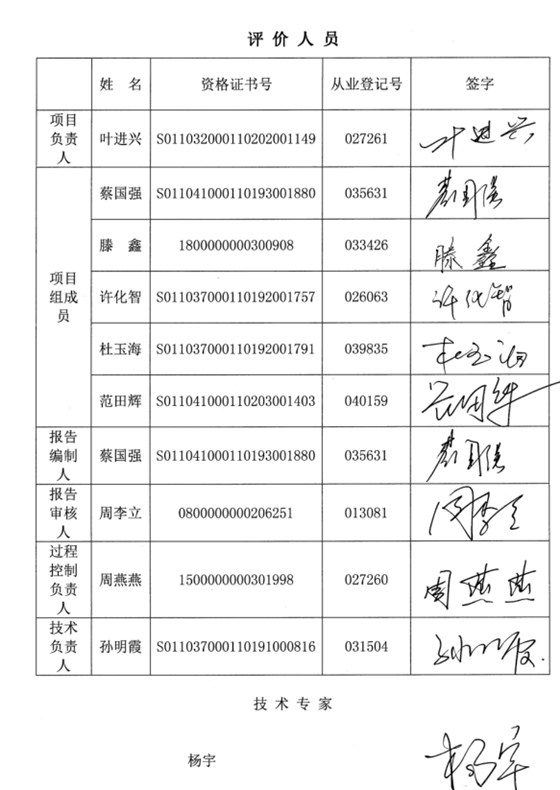 评价人员
姓 名 资格证书号 从业登记号 签字
项目负责人 叶进兴 S011032000110202001149 027261 叶进兴
项目组成员 蔡国强 S011041000110193001880 035631 蔡国强
滕 鑫 1800000000300908 033426 滕鑫
许化智 S011037000110192001757 026063 许化智
杜玉海 S011037000110192001791 039835 杜玉海
范田辉 S011041000110203001403 040159 范田辉
报告编制人 蔡国强 S011041000110193001880 035631 蔡国强
报告审核人 周李立 0800000000206251 013081 周李立
过程控制负责人 周燕燕 1500000000301998 027260 周燕燕
技术负责人 孙明霞 S011037000110191000816 031504 孙明霞
技术专家
杨宇 杨宇